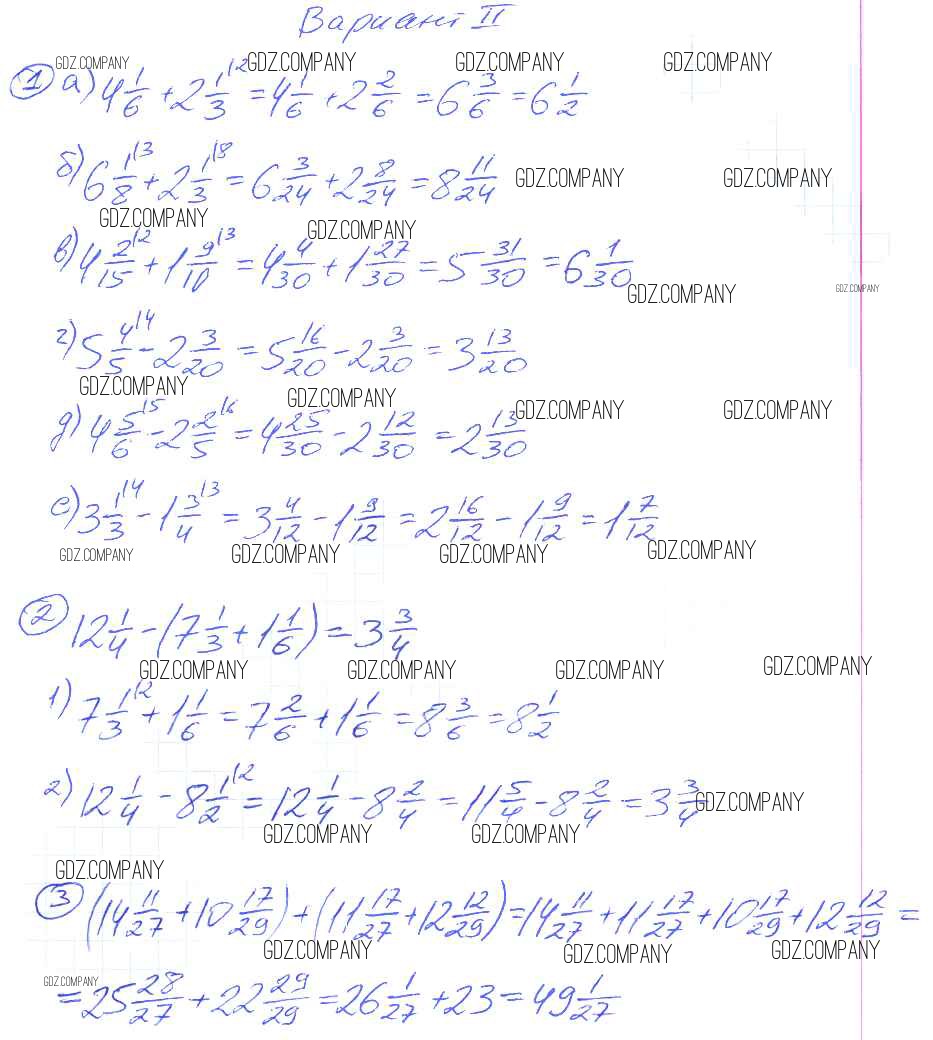 Вариант II
GDZ.COMPANY GDZ.COMPANY GDZ.COMPANY GDZ.COMPANY
1 а) 4 1/6 + 2 1/3 \2 = 4 1/6 + 2 2/6 = 6 3/6 = 6 1/2
б) 6 1/8 \3 + 2 1/3 \8 = 6 3/24 + 2 8/24 = 8 11/24 GDZ.COMPANY GDZ.COMPANY
GDZ.COMPANY GDZ.COMPANY
в) 4 2/15 \2 + 1 9/10 \3 = 4 4/30 + 1 27/30 = 5 31/30 = 6 1/30
GDZ.COMPANY GDZ.COMPANY
г) 5 4/5 \4 - 2 3/20 = 5 16/20 - 2 3/20 = 3 13/20
GDZ.COMPANY GDZ.COMPANY GDZ.COMPANY GDZ.COMPANY
д) 4 5/6 \5 - 2 2/5 \6 = 4 25/30 - 2 12/30 = 2 13/30
е) 3 1/3 \4 - 1 3/4 \3 = 3 4/12 - 1 9/12 = 2 16/12 - 1 9/12 = 1 7/12
GDZ.COMPANY GDZ.COMPANY GDZ.COMPANY GDZ.COMPANY
2 12 1/4 - (7 1/3 + 1 1/6) = 3 3/4
GDZ.COMPANY GDZ.COMPANY GDZ.COMPANY GDZ.COMPANY
1) 7 1/3 \2 + 1 1/6 = 7 2/6 + 1 1/6 = 8 3/6 = 8 1/2
2) 12 1/4 - 8 1/2 \2 = 12 1/4 - 8 2/4 = 11 5/4 - 8 2/4 = 3 3/4 GDZ.COMPANY
GDZ.COMPANY GDZ.COMPANY
GDZ.COMPANY
3 (14 11/27 + 10 17/29) + (11 17/27 + 12 12/29) = 14 11/27 + 11 17/27 + 10 17/29 + 12 12/29 =
GDZ.COMPANY GDZ.COMPANY GDZ.COMPANY
GDZ.COMPANY
= 25 28/27 + 22 29/29 = 26 1/27 + 23 = 49 1/27